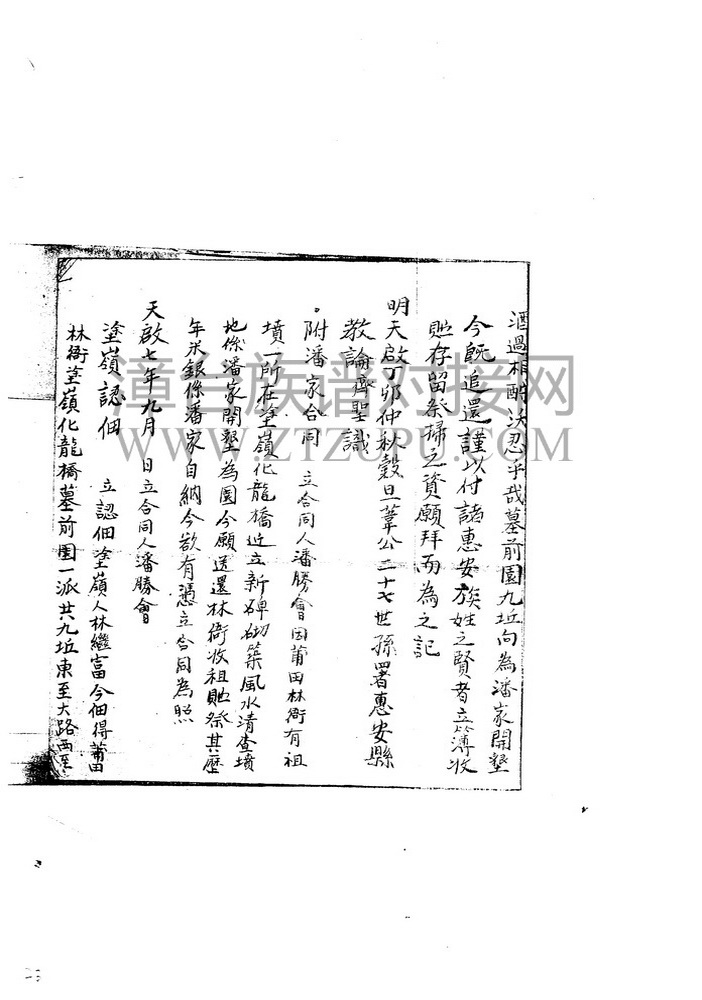 酒過相酹決忍乎哉墓前園九坵向為潘家開墾
今既追還謹以付諸惠安族姓之賢者立簿收
貯存留祭掃之資願拜而為之記
明天啟丁卯仲秋穀旦葦公二十七世孫署惠安縣
教諭齊聖識
附潘家合同 立合同人潘勝會因莆田林衙有祖
墳一所在塗嶺化龍橋近立新碑砌築風水清查墳
地係潘家開墾為園今願送還林衙收祖貽祭其歷
年米銀係潘家自納今欲有憑立合同為照
天啟七年九月 日立合同人潘勝會
塗嶺認佃 立認佃塗嶺人林繼富今佃得莆田
林衙塗嶺化龍橋墓前園一派共九坵東至大路西至
漳台族谱对接网
WWW.ZTZUPU.COM